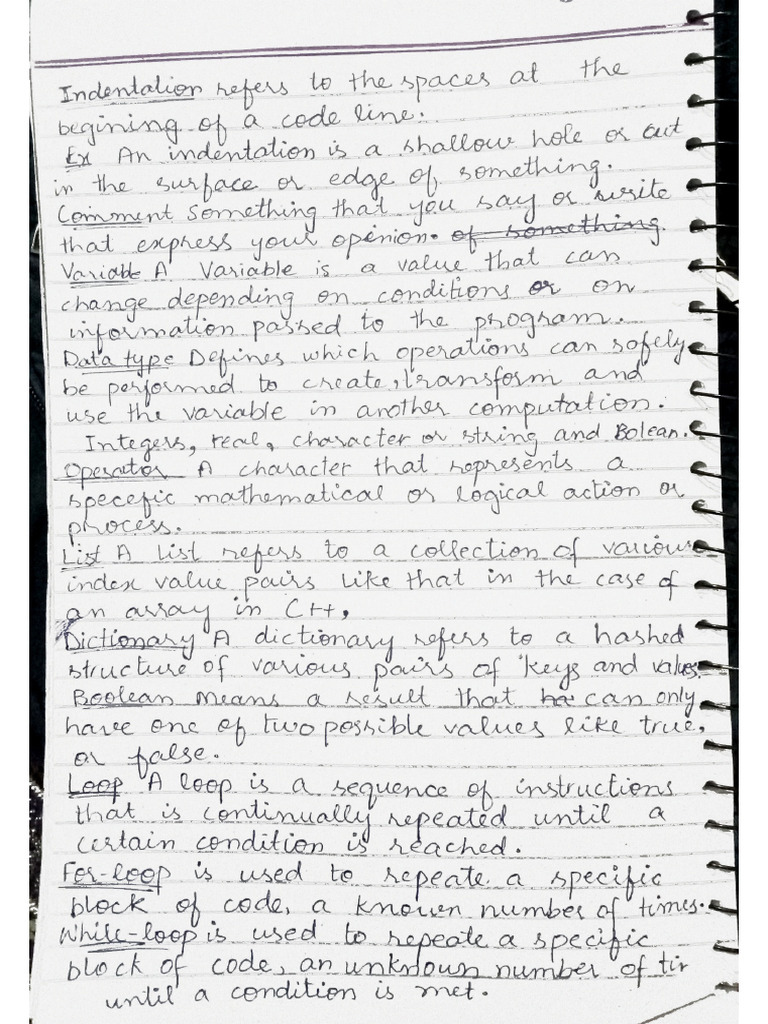 Indentation refers to the spaces at the
begining of a code line.
Ex An indentation is a shallow hole or cut
in the surface or edge of something.
Comment Something that you say or write
that express your opinion. of something.
Variable A Variable is a value that can
change depending on conditions or on
information passed to the program.
Data type Defines which operations can safely
be performed to create, transform and
use the variable in another computation.
Integers, real, character or string and Bolean.
Operator A character that represents a
specefic mathematical or logical action or
process.
List A List refers to a collection of various
index value pairs like that in the case of
an array in C++,
Dictionary A dictionary refers to a hashed
structure of various pairs of keys and values.
Boolean means a result that can only
have one of two possible values like true,
or false.
Loop A loop is a sequence of instructions
that is continually repeated until a
certain condition is reached.
For-loop is used to repeate a specific
block of code, a known number of times.
While-loop is used to repeate a specific
block of code, an unknown number of
until a condition is met.